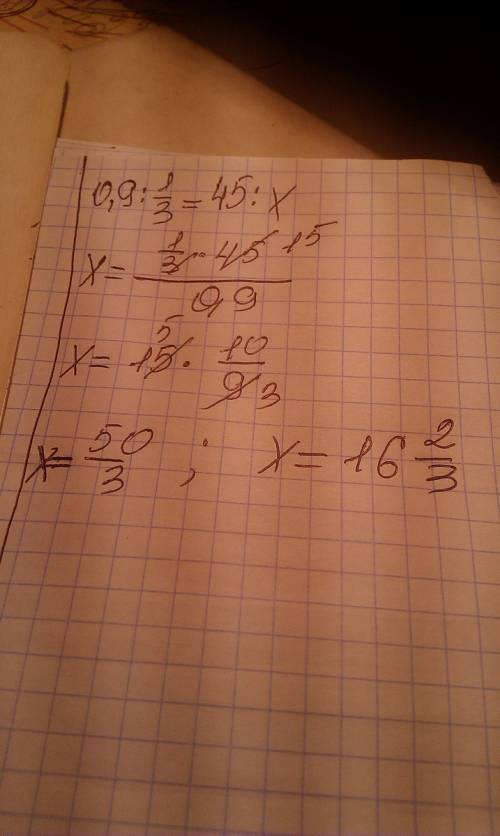 0,9 : 1/3 = 45 : x
x = (1/3 · 45 15) / 0,9
x = 15 5 · 10/9 3
x = 50/3 ; x = 16 2/3